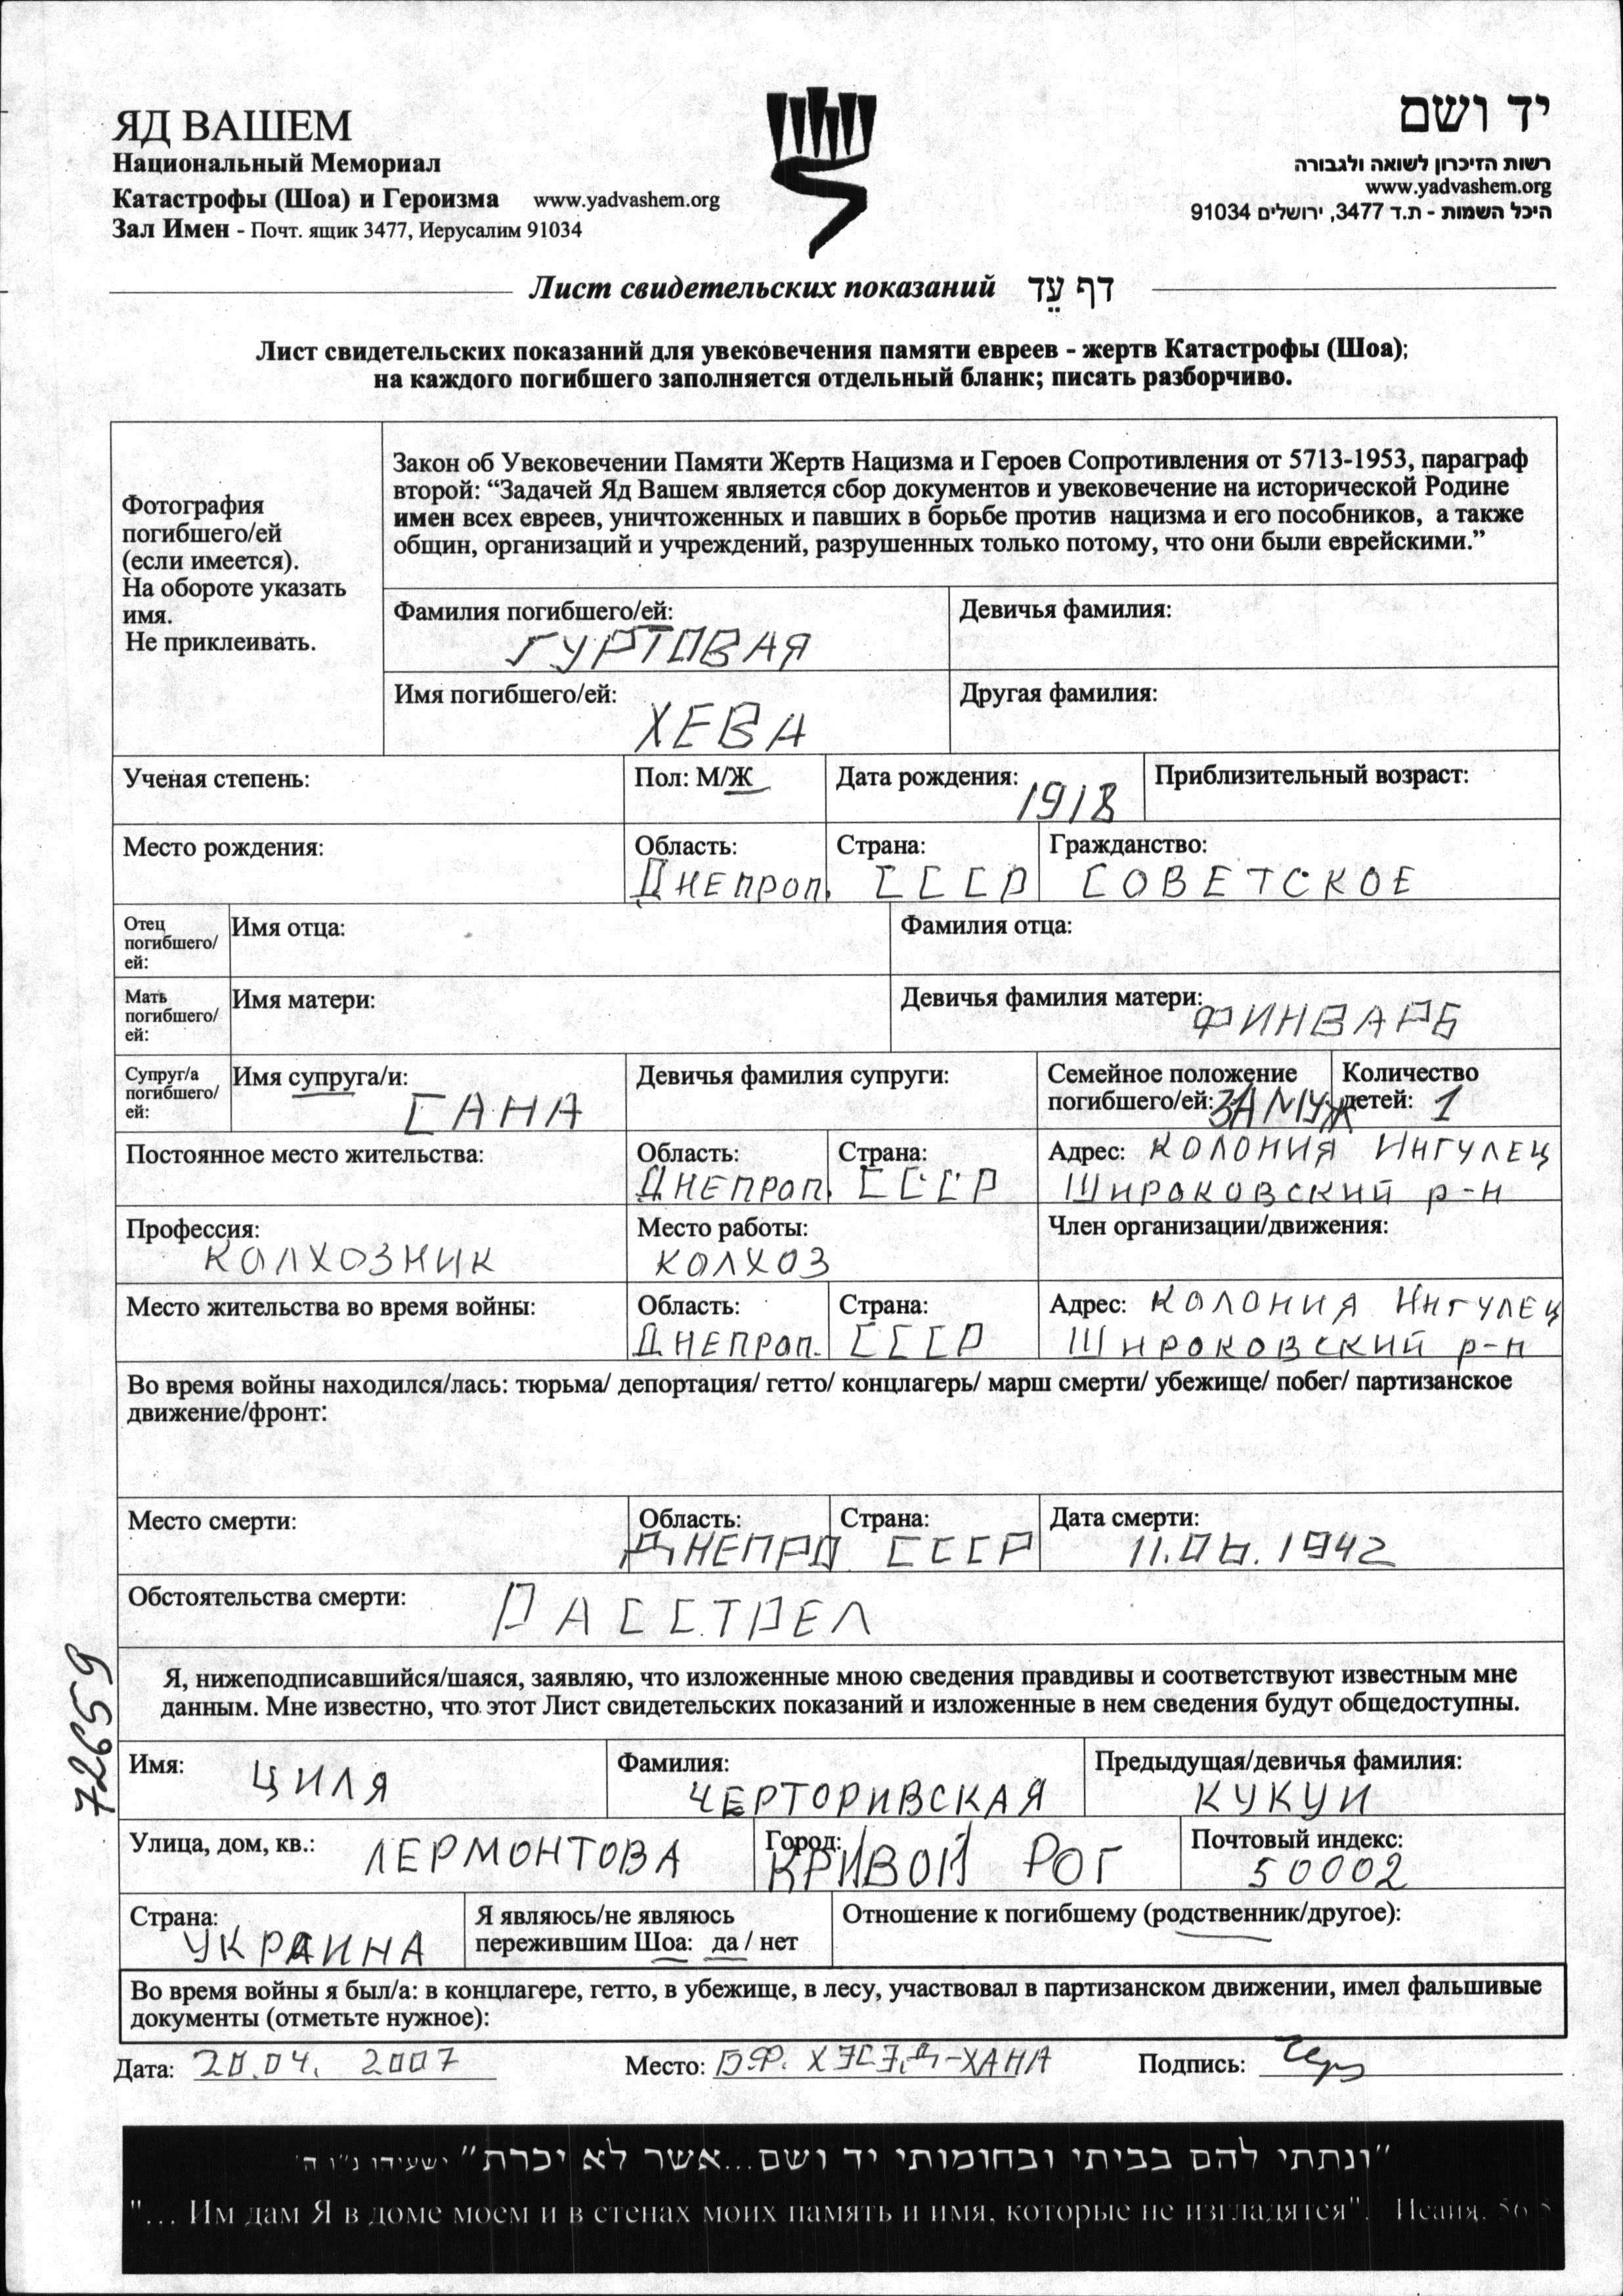 ЯД ВАШЕМ
Национальный Мемориал
Катастрофы (Шоа) и Героизма www.yadvashem.org
Зал Имен - Почт. ящик 3477, Иерусалим 91034
יד ושם
רשות הזיכרון לשואה ולגבורה
www.yadvashem.org
היכל השמות - ת.ד 3477, ירושלים 91034
Лист свидетельских показаний דף עֵד
Лист свидетельских показаний для увековечения памяти евреев - жертв Катастрофы (Шоа);
на каждого погибшего заполняется отдельный бланк; писать разборчиво.
Фотография
погибшего/ей
(если имеется).
На обороте указать
имя.
Не приклеивать.
Закон об Увековечении Памяти Жертв Нацизма и Героев Сопротивления от 5713-1953, параграф
второй: “Задачей Яд Вашем является сбор документов и увековечение на исторической Родине
имен всех евреев, уничтоженных и павших в борьбе против нацизма и его пособников, а также
общин, организаций и учреждений, разрушенных только потому, что они были еврейскими.”
Фамилия погибшего/ей: Девичья фамилия:
ГУРТОВАЯ
Имя погибшего/ей: Другая фамилия:
ХЕВА
Ученая степень: Пол: М/Ж Дата рождения: 1918 Приблизительный возраст:
Место рождения: Область: Страна: Гражданство:
ДНЕПРОП. СССР СОВЕТСКОЕ
Отец
погибшего/
ей:
Имя отца: Фамилия отца:
Мать
погибшего/
ей:
Имя матери: Девичья фамилия матери: ФИНВАРБ
Супруг/а
погибшего/
ей:
Имя супруга/и: САНА
Девичья фамилия супруги:
Семейное положение
погибшего/ей: ЗАМУЖ
Количество
детей: 1
Постоянное место жительства: Область: Страна: Адрес: КОЛОНИЯ ИНГУЛЕЦ
ДНЕПРОП. СССР ШИРОКОВСКИЙ р-н
Профессия: Место работы: Член организации/движения:
КОЛХОЗНИК КОЛХОЗ
Место жительства во время войны: Область: Страна: Адрес: КОЛОНИЯ ИНГУЛЕЦ
ДНЕПРОП. СССР ШИРОКОВСКИЙ р-н
Во время войны находился/лась: тюрьма/ депортация/ гетто/ концлагерь/ марш смерти/ убежище/ побег/ партизанское
движение/фронт:
Место смерти: Область: Страна: Дата смерти:
ДНЕПРО СССР 1942
Обстоятельства смерти: РАССТРЕЛ
Я, нижеподписавшийся/шаяся, заявляю, что изложенные мною сведения правдивы и соответствуют известным мне
данным. Мне известно, что этот Лист свидетельских показаний и изложенные в нем сведения будут общедоступны.
72659
Имя: ЦИЛЯ Фамилия: Предыдущая/девичья фамилия:
ЧЕРТОРИВСКАЯ КУКУИ
Улица, дом, кв.: ЛЕРМОНТОВА Город: КРИВОЙ РОГ Почтовый индекс:
50002
Страна: УКРАИНА
Я являюсь/не являюсь
пережившим Шоа: да / нет
Отношение к погибшему (родственник/другое):
Во время войны я был/а: в концлагере, гетто, в убежище, в лесу, участвовал в партизанском движении, имел фальшивые
документы (отметьте нужное):
Дата: 20.04. 2007 Место: Б.Ф. ХЭСЭД-ХАНА Подпись:
"ונתתי להם בביתי ובחומותי יד ושם...אשר לא יכרת" ישעיהו נ"ו ה'
"... Им дам Я в доме моем и в стенах моих память и имя, которые не изгладятся". Исаия, 56 5